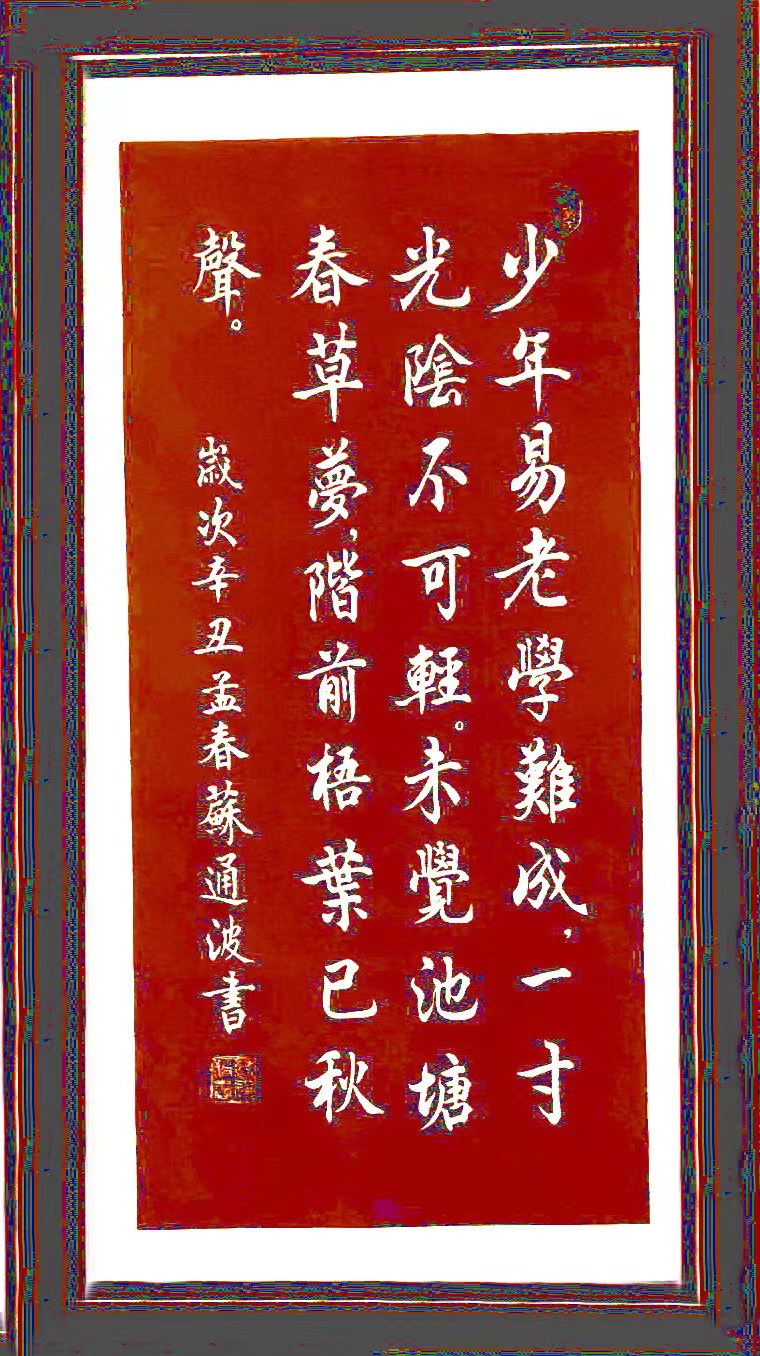 少年易老學難成，一寸
光陰不可輕。未覺池塘
春草夢，階前梧葉已秋
聲。
歲次辛丑孟春蘇通波書